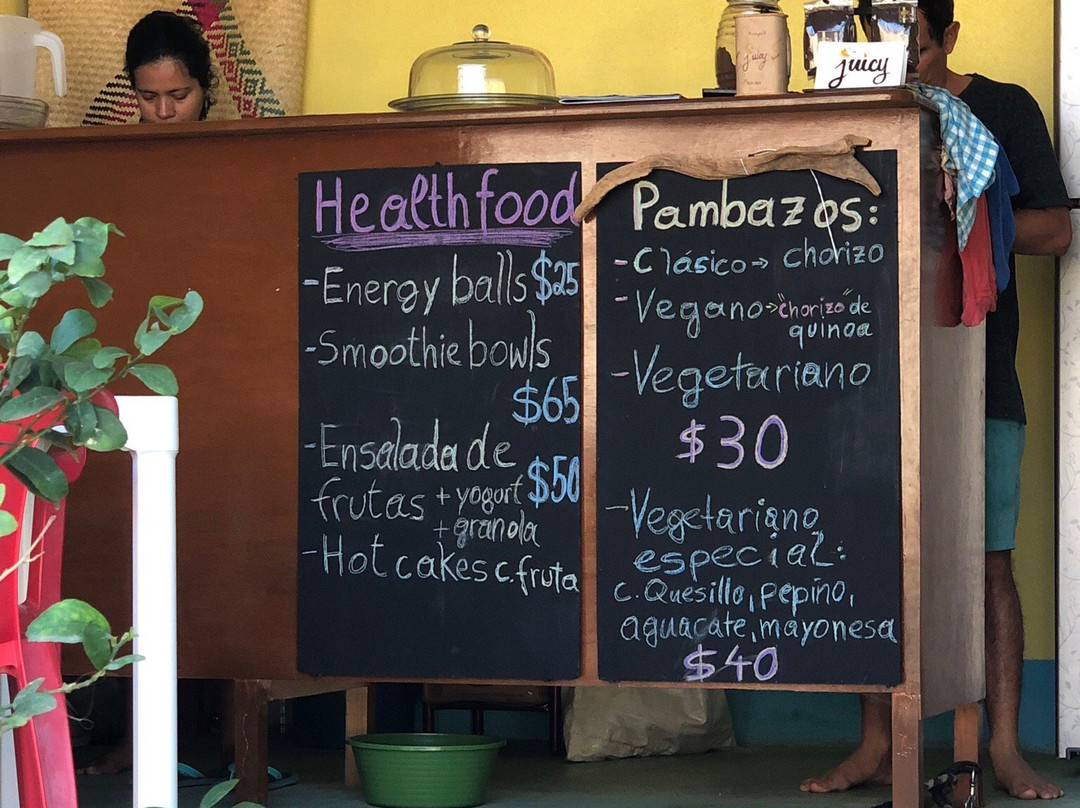 juicy
juicy
Healthfood
-Energy balls $25
-Smoothie bowls
$65
-Ensalada de
frutas + yogort $50
+ granola
-Hot cakes c. fruta
Pambazos:
-Clásico→ chorizo
-Vegano→"chorizo" de
quinoa
-Vegetariano
$30
-Vegetariano
especial:
c. Quesillo, pepino,
aguacate, mayonesa
$40